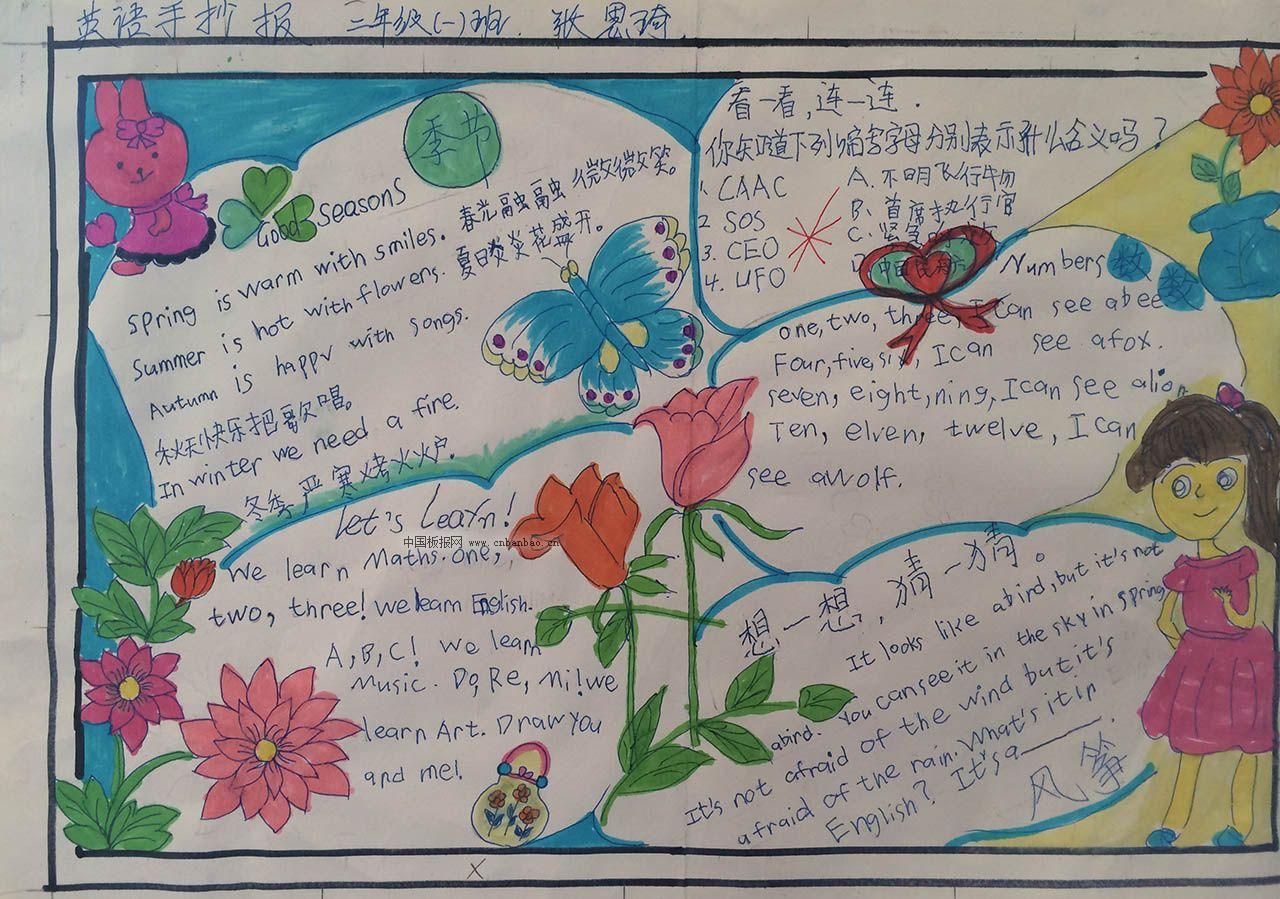 英语手抄报 二年级(一)班 张思琦
季节
Good seasons
Spring is warm with smiles. 春光融融微微笑。
Summer is hot with flowers. 夏日炎炎花盛开。
Autumn is happy with songs.
秋天快乐把歌唱。
In winter we need a fire.
冬季严寒烤火炉.
看一看,连一连.
你知道下列缩写字母分别表示什么含义吗?
1. CAAC
2 SOS
3. CEO
4. UFO
A. 不明飞行物
B. 首席执行官
C. 紧急
D 中国民
Numbers 数数
one, two, three, I can see abee
Four, five, six, I can see afox.
seven, eight, ning, I can see alion
Ten, elven, twelve, I can
see awolf.
Let's Learn!
We learn Maths. One,
two, three! We learn English.
A, B, C! We learn
Music. Do, Re, Mi! we
learn Art. Draw you
and me!
中国板报网 www.cnbanbao.cn
想一想,猜一猜。
It looks like abird, but it's not
abird. You can see it in the sky in spring
It's not afraid of the wind but it's
afraid of the rain. What's it in
English? It's a———.
风筝
X